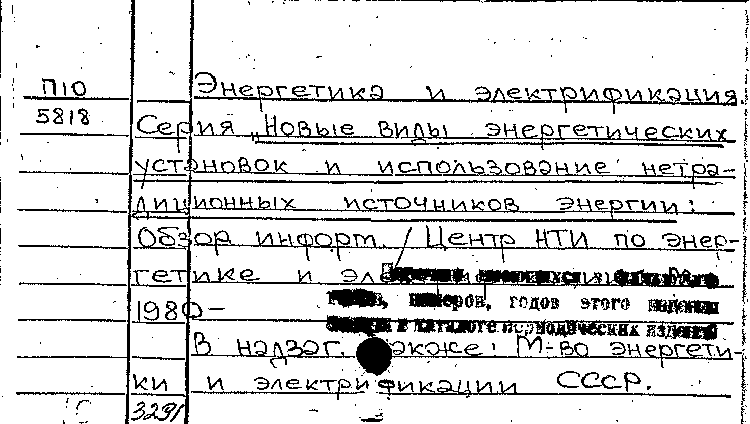 П10 Энергетика и электрификация.
5818 Серия „Новые виды энергетических
установок и использование нетра-
диционных источников энергии:
Обзор информ. / Центр НТИ по энер-
гетике и
номеров, годов этого издания
1980–
в каталоге периодических изданий
В надзаг. также: М-во энергети-
ки и электрификации СССР.
3291